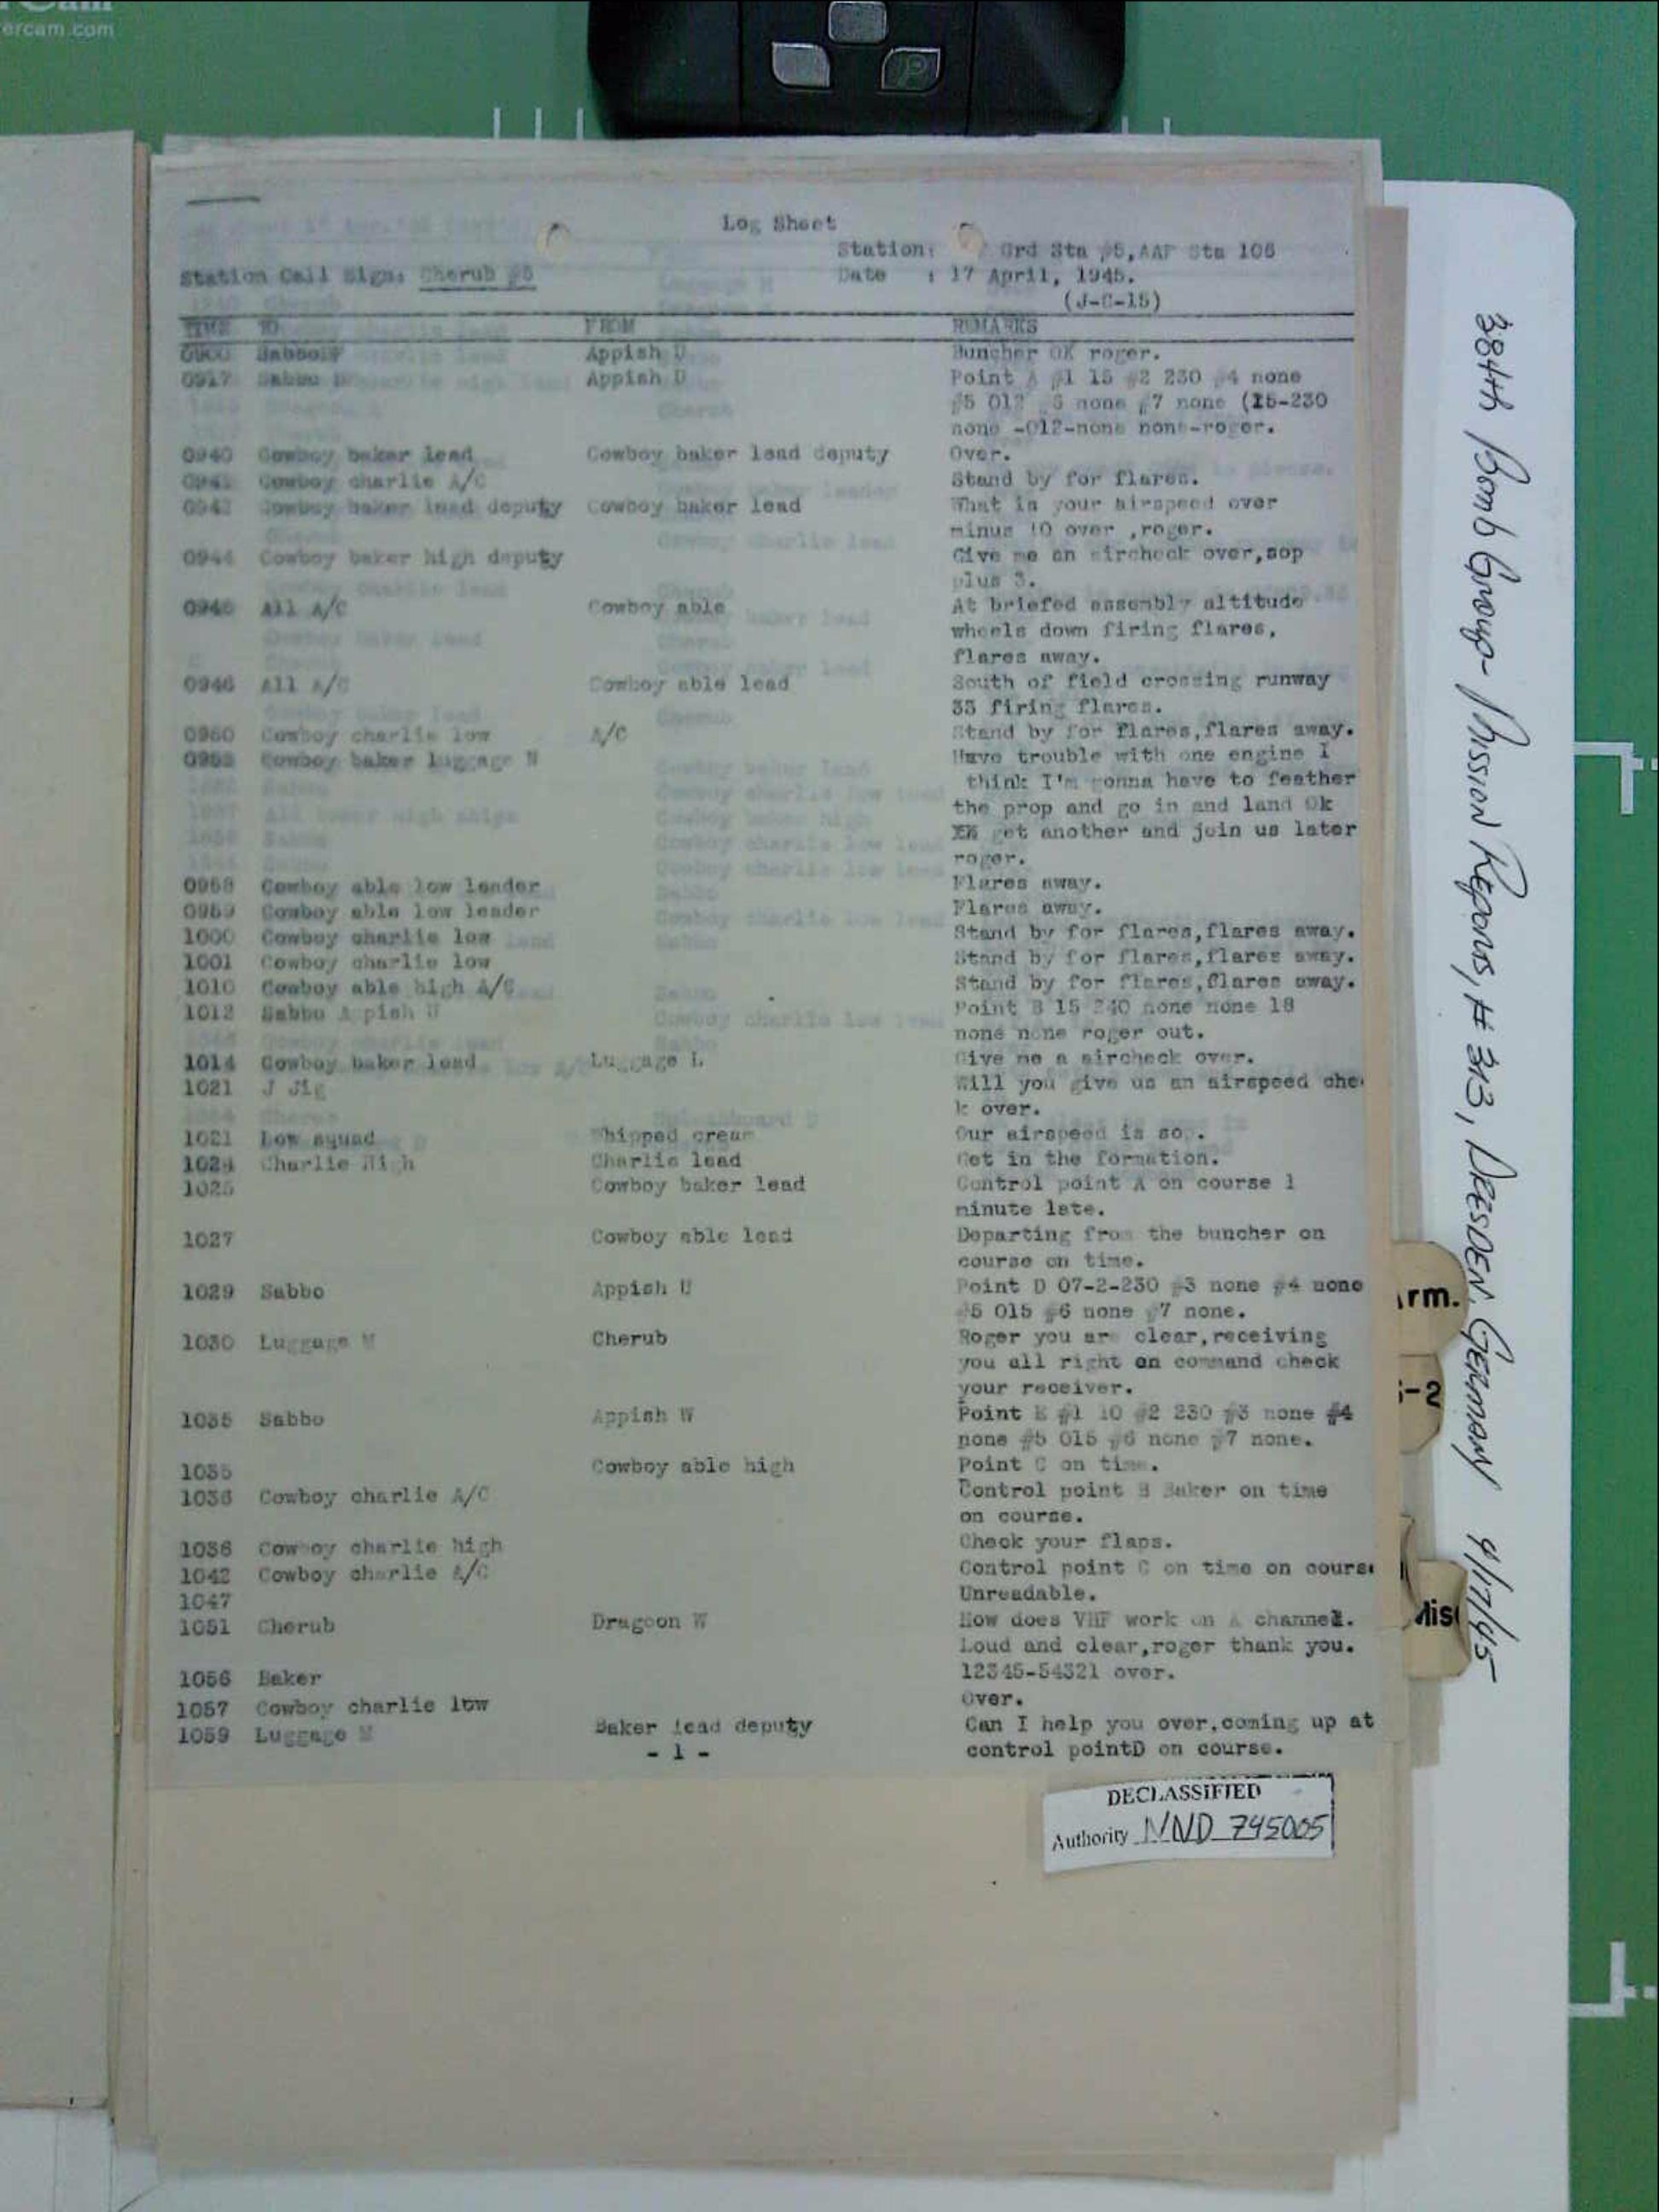 ercam.com
Log Sheet
Station: Grd Sta #5,AAF Sta 106
Station Call Sign: Cherub #5 Date : 17 April, 1945.
(J-C-15)
TIME TO FROM REMARKS
Appish Buncher OK roger.
0917 Sabbo Appish D Point A #1 15 #2 230 #4 none
#5 012 6 none #7 none (15-230
none -012-none none-roger.
0940 Cowboy baker lead Cowboy baker lead deputy Over.
Cowboy charlie A/C Stand by for flares.
Cowboy baker lead deputy Cowboy baker lead What is your airspeed over
minus 10 over ,roger.
0944 Cowboy baker high deputy Give me an aircheck over,sop
plus 3.
All A/C Cowboy able At briefed assembly altitude
wheels down firing flares,
flares away.
0946 All A/C Cowboy able lead South of field crossing runway
33 firing flares.
Cowboy charlie low A/C Stand by for flares,flares away.
Cowboy baker luggage Have trouble with one engine I
think I'm gonna have to feather
the prop and go in and land Ok
get another and join us later
roger.
0958 Cowboy able low leader Flares away.
0959 Cowboy able low leader Flares away.
1000 Cowboy charlie low Stand by for flares,flares away.
1001 Cowboy charlie low Stand by for flares,flares away.
1010 Cowboy able high A/C Stand by for flares,flares away.
1012 Sabbo Point B 15 240 none none 18
none none roger out.
1014 Cowboy baker lead Luggage L Give me a aircheck over.
1021 J Jig Will you give us an airspeed che
k over.
1021 Low squad Whipped cream Our airspeed is sop.
1024 Charlie High Charlie lead Get in the formation.
1025 Cowboy baker lead Control point A on course 1
minute late.
1027 Cowboy able lead Departing from the buncher on
course on time.
1029 Sabbo Appish U Point D 07-2-230 #3 none #4 none
#5 015 #6 none #7 none.
1030 Luggage M Cherub Roger you are clear,receiving
you all right on command check
your receiver.
1035 Sabbo Appish W Point E #1 10 #2 230 #3 none #4
none #5 015 #6 none #7 none.
1035 Cowboy able high Point C on time.
1036 Cowboy charlie A/C Control point B Baker on time
on course.
1036 Cowboy charlie high Check your flaps.
1042 Cowboy charlie A/C Control point C on time on course
1047 Unreadable.
1051 Cherub Dragoon W How does VHF work on A channel.
Loud and clear,roger thank you.
1056 Baker 12345-54321 over.
1057 Cowboy charlie low Over.
1059 Luggage M Baker lead deputy Can I help you over,coming up at
- 1 - control pointD on course.
DECLASSIFIED
Authority NND 745005
384th Bomb Group- Mission Reports, # 313, Dresden, Germany 4/17/45
rm.
-2
Mis